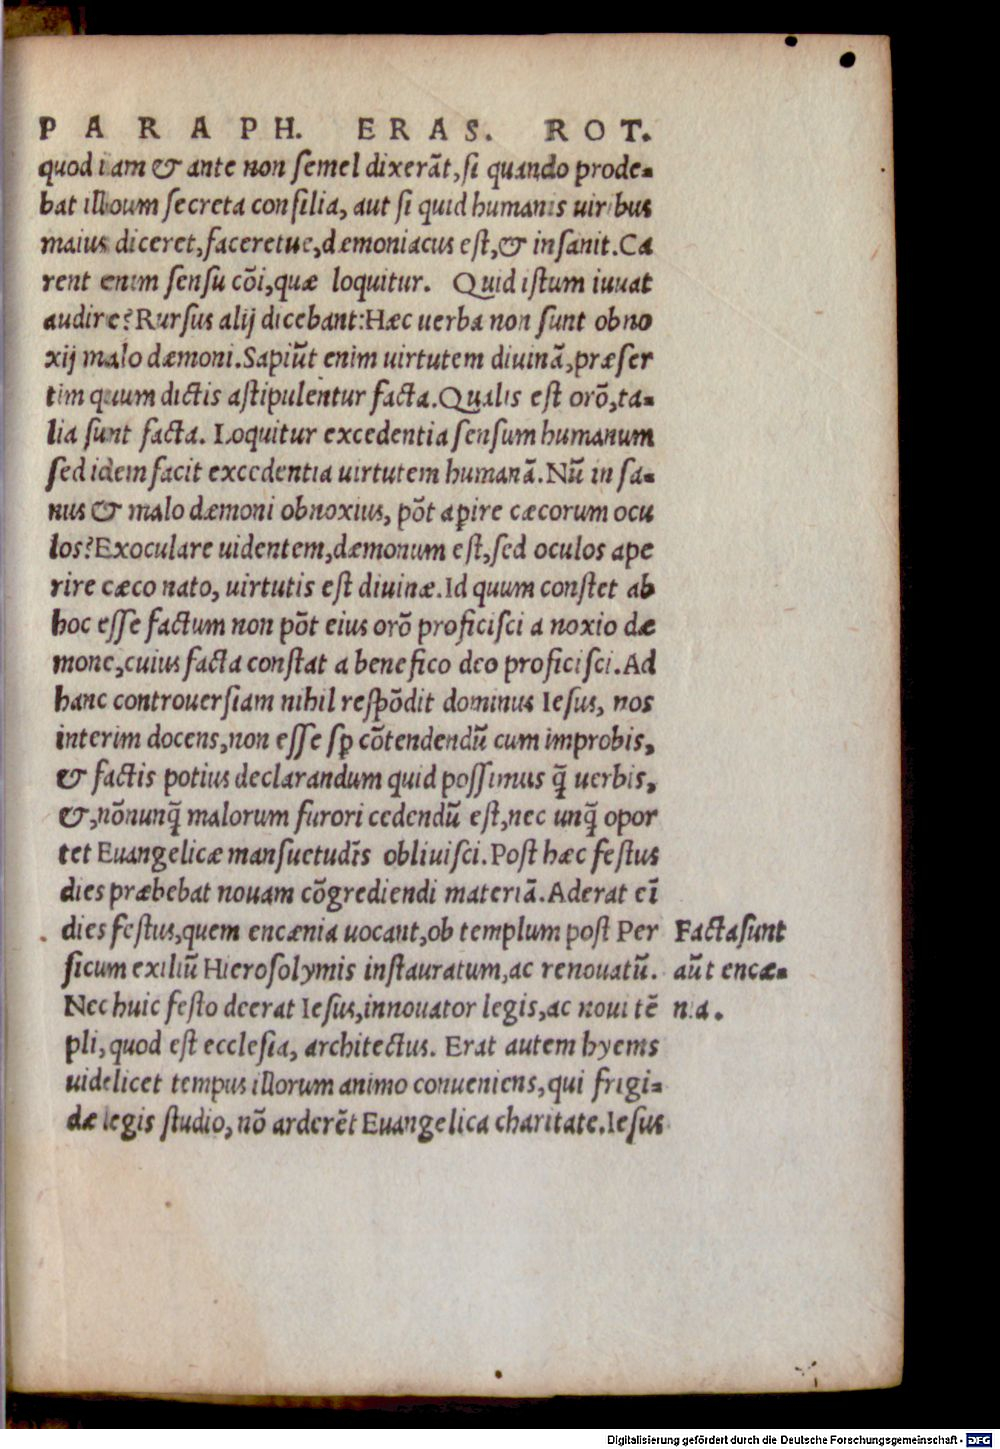 PARAPH. ERAS. ROT.
quod iam & ante non semel dixerãt, si quando prode-
bat illoum secreta consilia, aut si quid humanis uiribus
maius diceret, faceretue, dæmoniacus est, & insanit. Ca
rent enim sensu cõi, quæ loquitur. Quid istum iuuat
audire? Rursus alij dicebant: Hæc uerba non sunt obno
xij malo dæmoni. Sapiũt enim uirtutem diuinã, præser
tim quum dictis astipulentur facta. Qualis est orõ, ta-
lia sunt facta. Loquitur excedentia sensum humanum
sed idem facit excedentia uirtutem humanã. Nũ insa-
nus & malo dæmoni obnoxius, põt apire cæcorum ocu
los? Exoculare uidentem, dæmonum est, sed oculos ape
rire cæco nato, uirtutis est diuinæ. Id quum constet ab
hoc esse factum non põt eius orõ proficisci a noxio dæ
mone, cuius facta constat a benefico deo proficisci. Ad
hanc controuersiam nihil respõdit dominus Iesus, nos
interim docens, non esse sp cõtendendũ cum improbis,
& factis potius declarandum quid possimus q̃ uerbis,
&, nõnunq̃ malorum furori cedendũ est, nec unq̃ opor
tet Euangelicæ mansuetudĩs obliuisci. Post hæc festus
dies præbebat nouam cõgrediendi materiã. Aderat eĩ
dies festus, quem encænia uocant, ob templum post Per
sicum exiliũ Hierosolymis instauratum, ac renouatũ.
Nec huic festo deerat Iesus, innouator legis, ac noui tẽ
pli, quod est ecclesia, architectus. Erat autem hyems
uidelicet tempus illorum animo conueniens, qui frigi-
dæ legis studio, nõ arderẽt Euangelica charitate. Iesus
Facta sunt
aũt encæ-
nia.
Digitalisierung gefördert durch die Deutsche Forschungsgemeinschaft - DFG